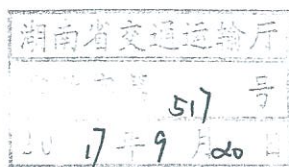 湖南省交通运输厅
517 号
2017年9月20日